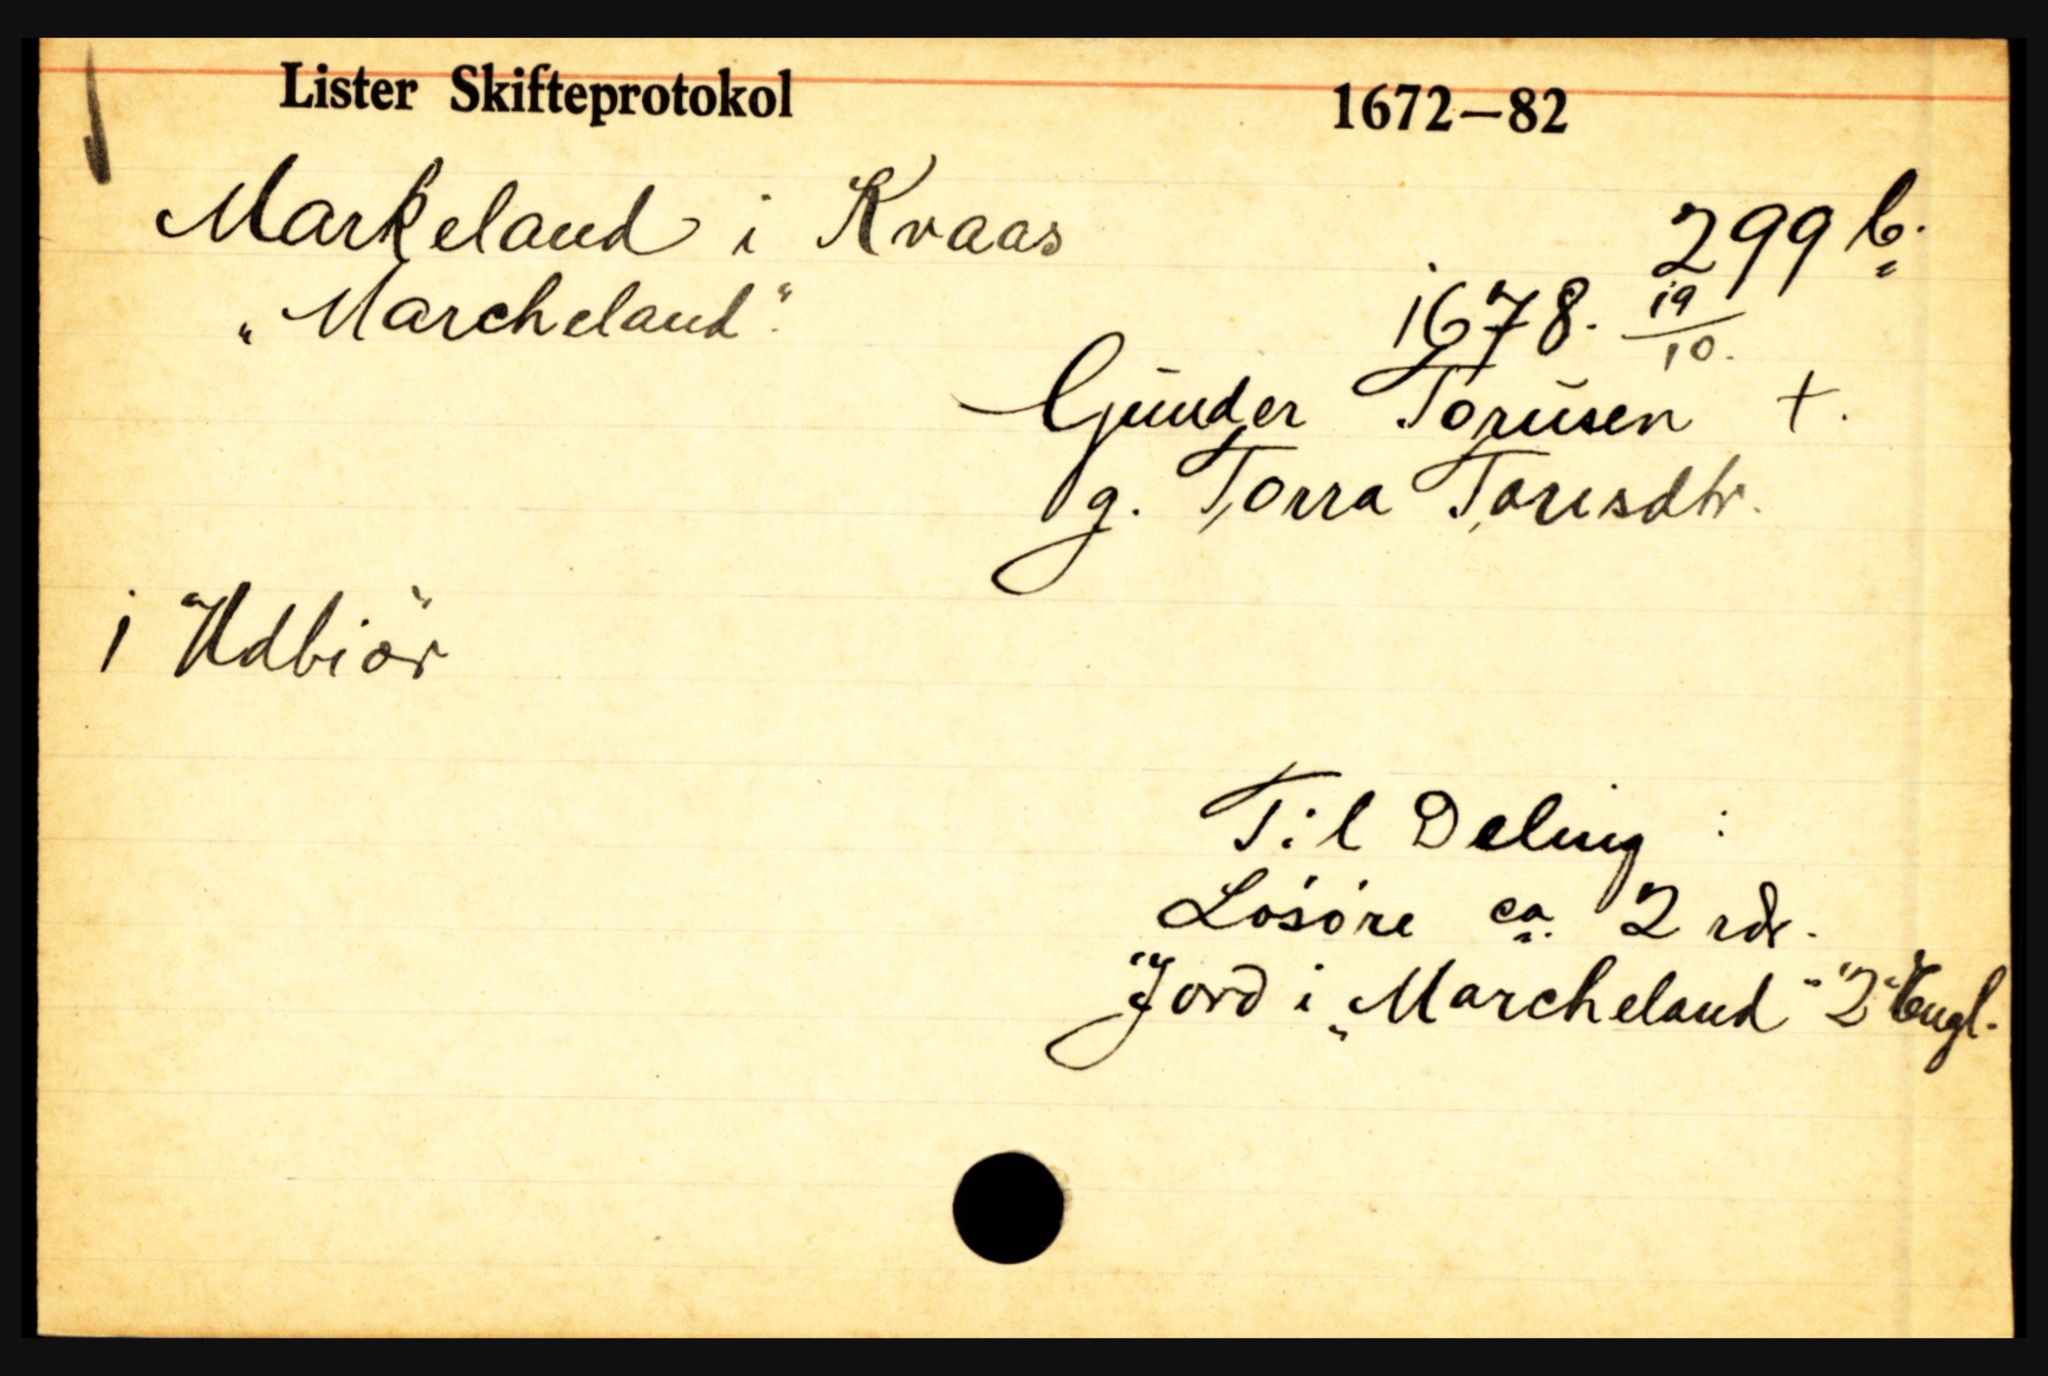 Lister Skifteprotokol 1672–82
Markeland i Kvaas
299 b.
„Marcheland"
1678. 19/10.
Gunder Torusen +.
g. Torra Torisdtr.
i Udbiör
Til Deling :
Lösöre ca. 2 rdr.
Jord i „Marcheland" 2 Engl.